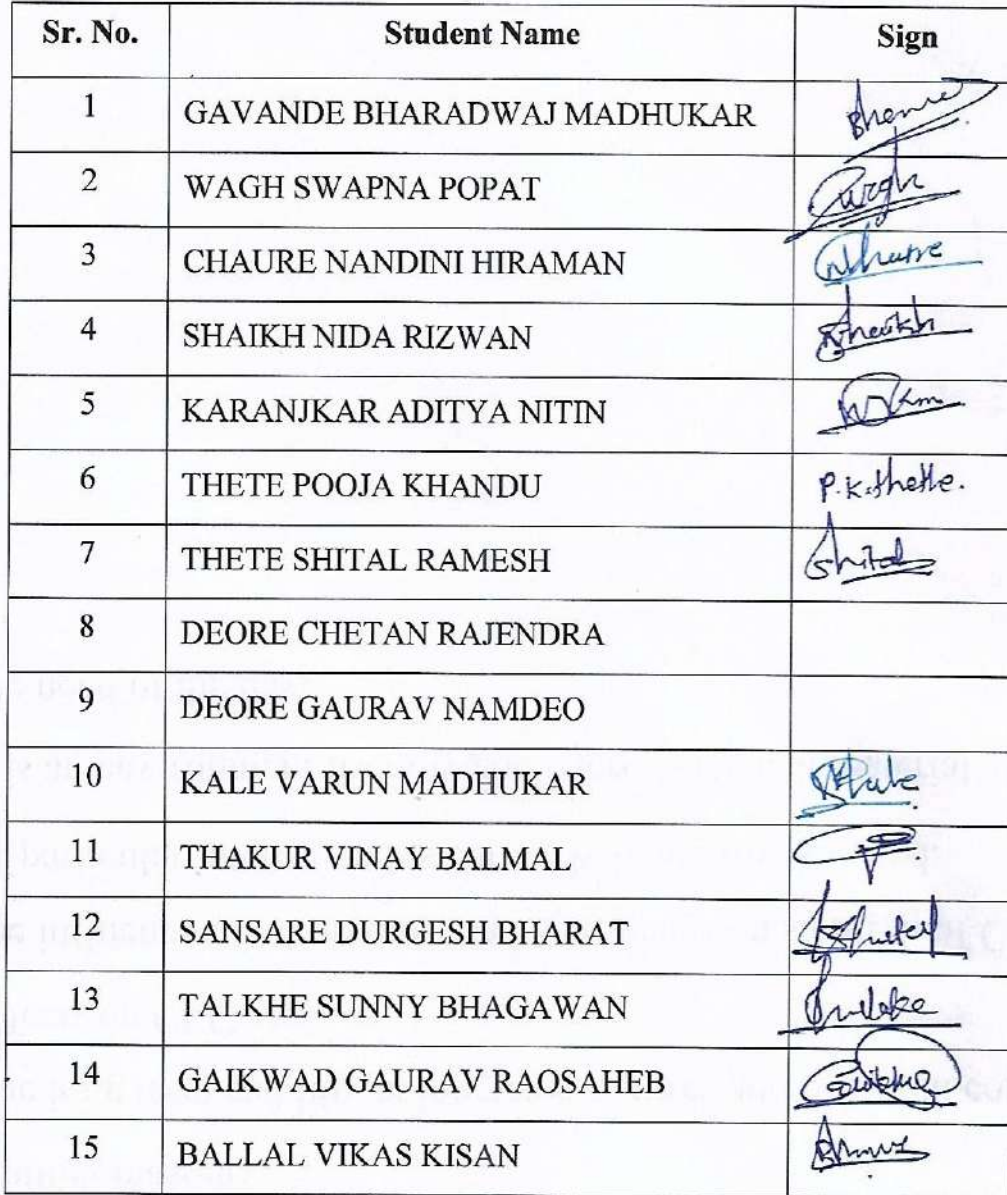 Sr. No. Student Name Sign
1 GAVANDE BHARADWAJ MADHUKAR
2 WAGH SWAPNA POPAT Wagh
3 CHAURE NANDINI HIRAMAN
4 SHAIKH NIDA RIZWAN Shaikh
5 KARANJKAR ADITYA NITIN
6 THETE POOJA KHANDU P.K.thete.
7 THETE SHITAL RAMESH Shital
8 DEORE CHETAN RAJENDRA
9 DEORE GAURAV NAMDEO
10 KALE VARUN MADHUKAR
11 THAKUR VINAY BALMAL
12 SANSARE DURGESH BHARAT
13 TALKHE SUNNY BHAGAWAN
14 GAIKWAD GAURAV RAOSAHEB
15 BALLAL VIKAS KISAN